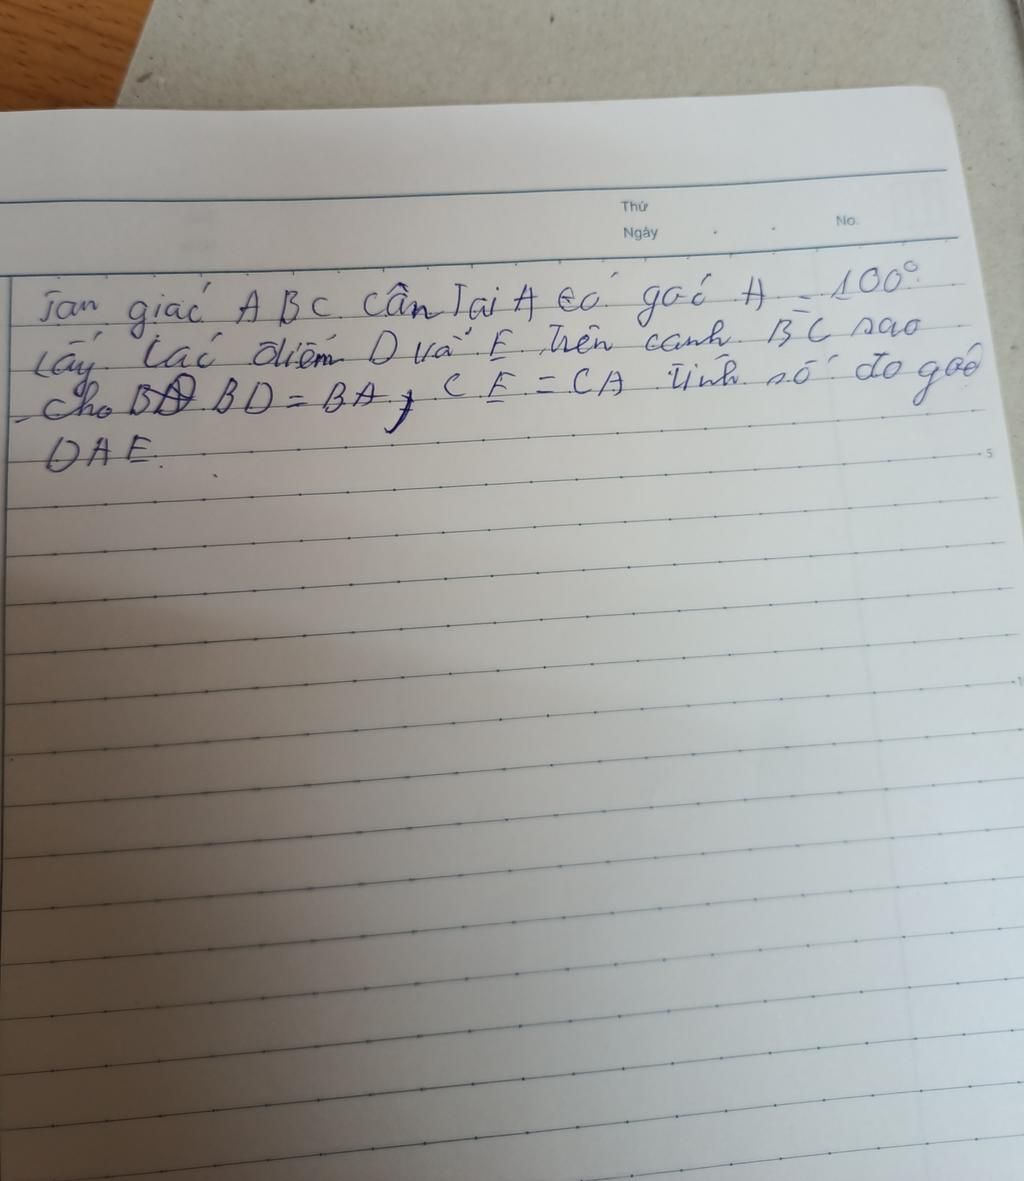 Thứ
Ngày . . No.
Tam giác ABC cân Tại A có góc A = 100°.
Lấy các điểm D và E trên cạnh BC sao
cho BD = BA, CE = CA Tính số đo góc
DAE.
5